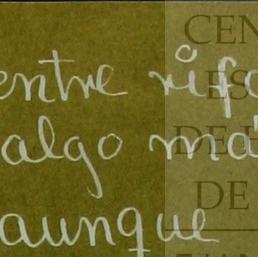 entre rifa
algo má
aunque
CEN
ES
DE
DE